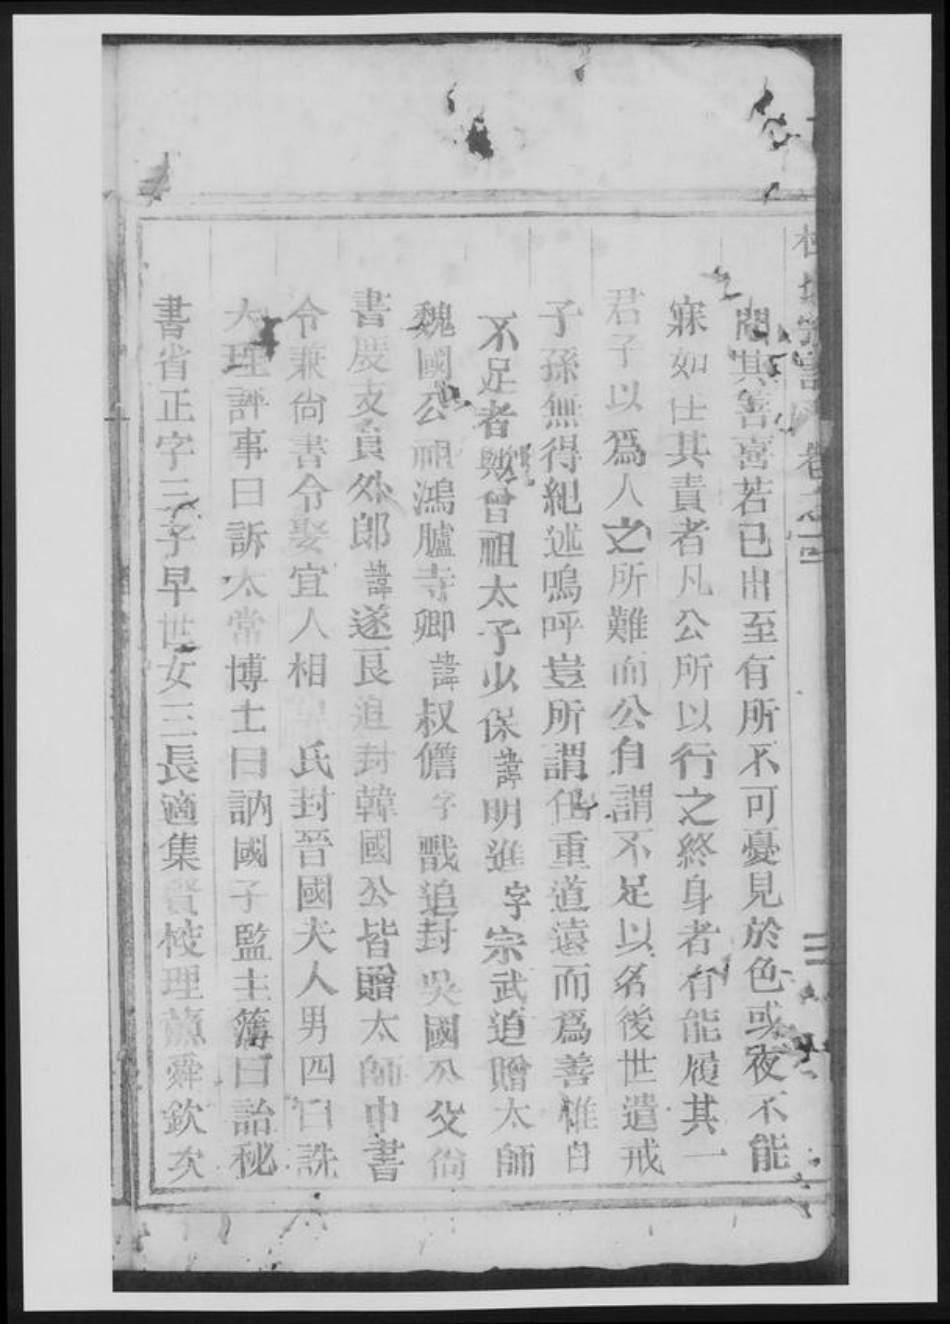 卷之一
三
聞其善喜若已出至有所不可憂見於色或夜不能
寐如仕其責者凡公所以行之終身者有能履其一
君子以爲人之所難而公自謂不足以名後世遣戒
子孫無得紀述嗚呼豈所謂任重道遠而爲善惟自
不足者歟曾祖太子少保諱明進字宗武追贈太師
魏國公祖鴻臚寺卿諱叔儋字戩追封吳國公父尙
書度支員外郎諱遂良追封韓國公皆贈太師中書
令兼尙書令娶宜人相 氏封晉國夫人男四曰詵
大理評事曰訴太常博士曰訥國子監主簿曰詒秘
書省正字三子早世女三長適集賢校理蘇舜欽次